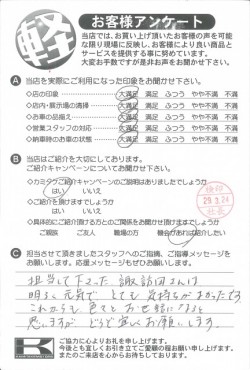 軽
お客様アンケート
当店では、お買い上げ頂いたお客様の声を可能
な限り現場に反映し、お客様により良い商品と
サービスを提供する事に努めています。
大変お手数ですが是非お声をお聞かせ下さい。
A 当店を実際にご利用になった印象をお聞かせ下さい。
◇店の印象 大満足 満足 ふつう やや不満 不満
◇店内・展示場の清掃 大満足 満足 ふつう やや不満 不満
◇お車の品揃え 大満足 満足 ふつう やや不満 不満
◇営業スタッフの対応 大満足 満足 ふつう やや不満 不満
◇納車時のお車の状態 大満足 満足 ふつう やや不満 不満
B 当店はご紹介を大切にしております。
ご紹介キャンペーンについてお聞かせ下さい。
◇カミタケご紹介キャンペーンのご説明はありましたでしょうか
はい いいえ
◇ご紹介を頂けますでしょうか
はい いいえ
29.3.24
◇具体的にご紹介頂ける方とのご関係をお聞かせ頂けますでしょうか
ご親族 ご友人 職場の方 機会があれば紹介したい
C 担当させて頂きましたスタッフへのご指摘、ご指導、メッセージを
お願いします。応援メッセージもぜひお願いします。
担当して下さった 諏訪田さんは
明るく 元気で とても 気持ちがよかったです
これからも 色々と お世話になると
思いますが どうぞ宜しくお願いします。
ご協力に心よりお礼を申し上げます。
今後とも宜しくお引き立てご愛顧の程お願い申し上げます。
またのご来店を心からお待ちしております。
K